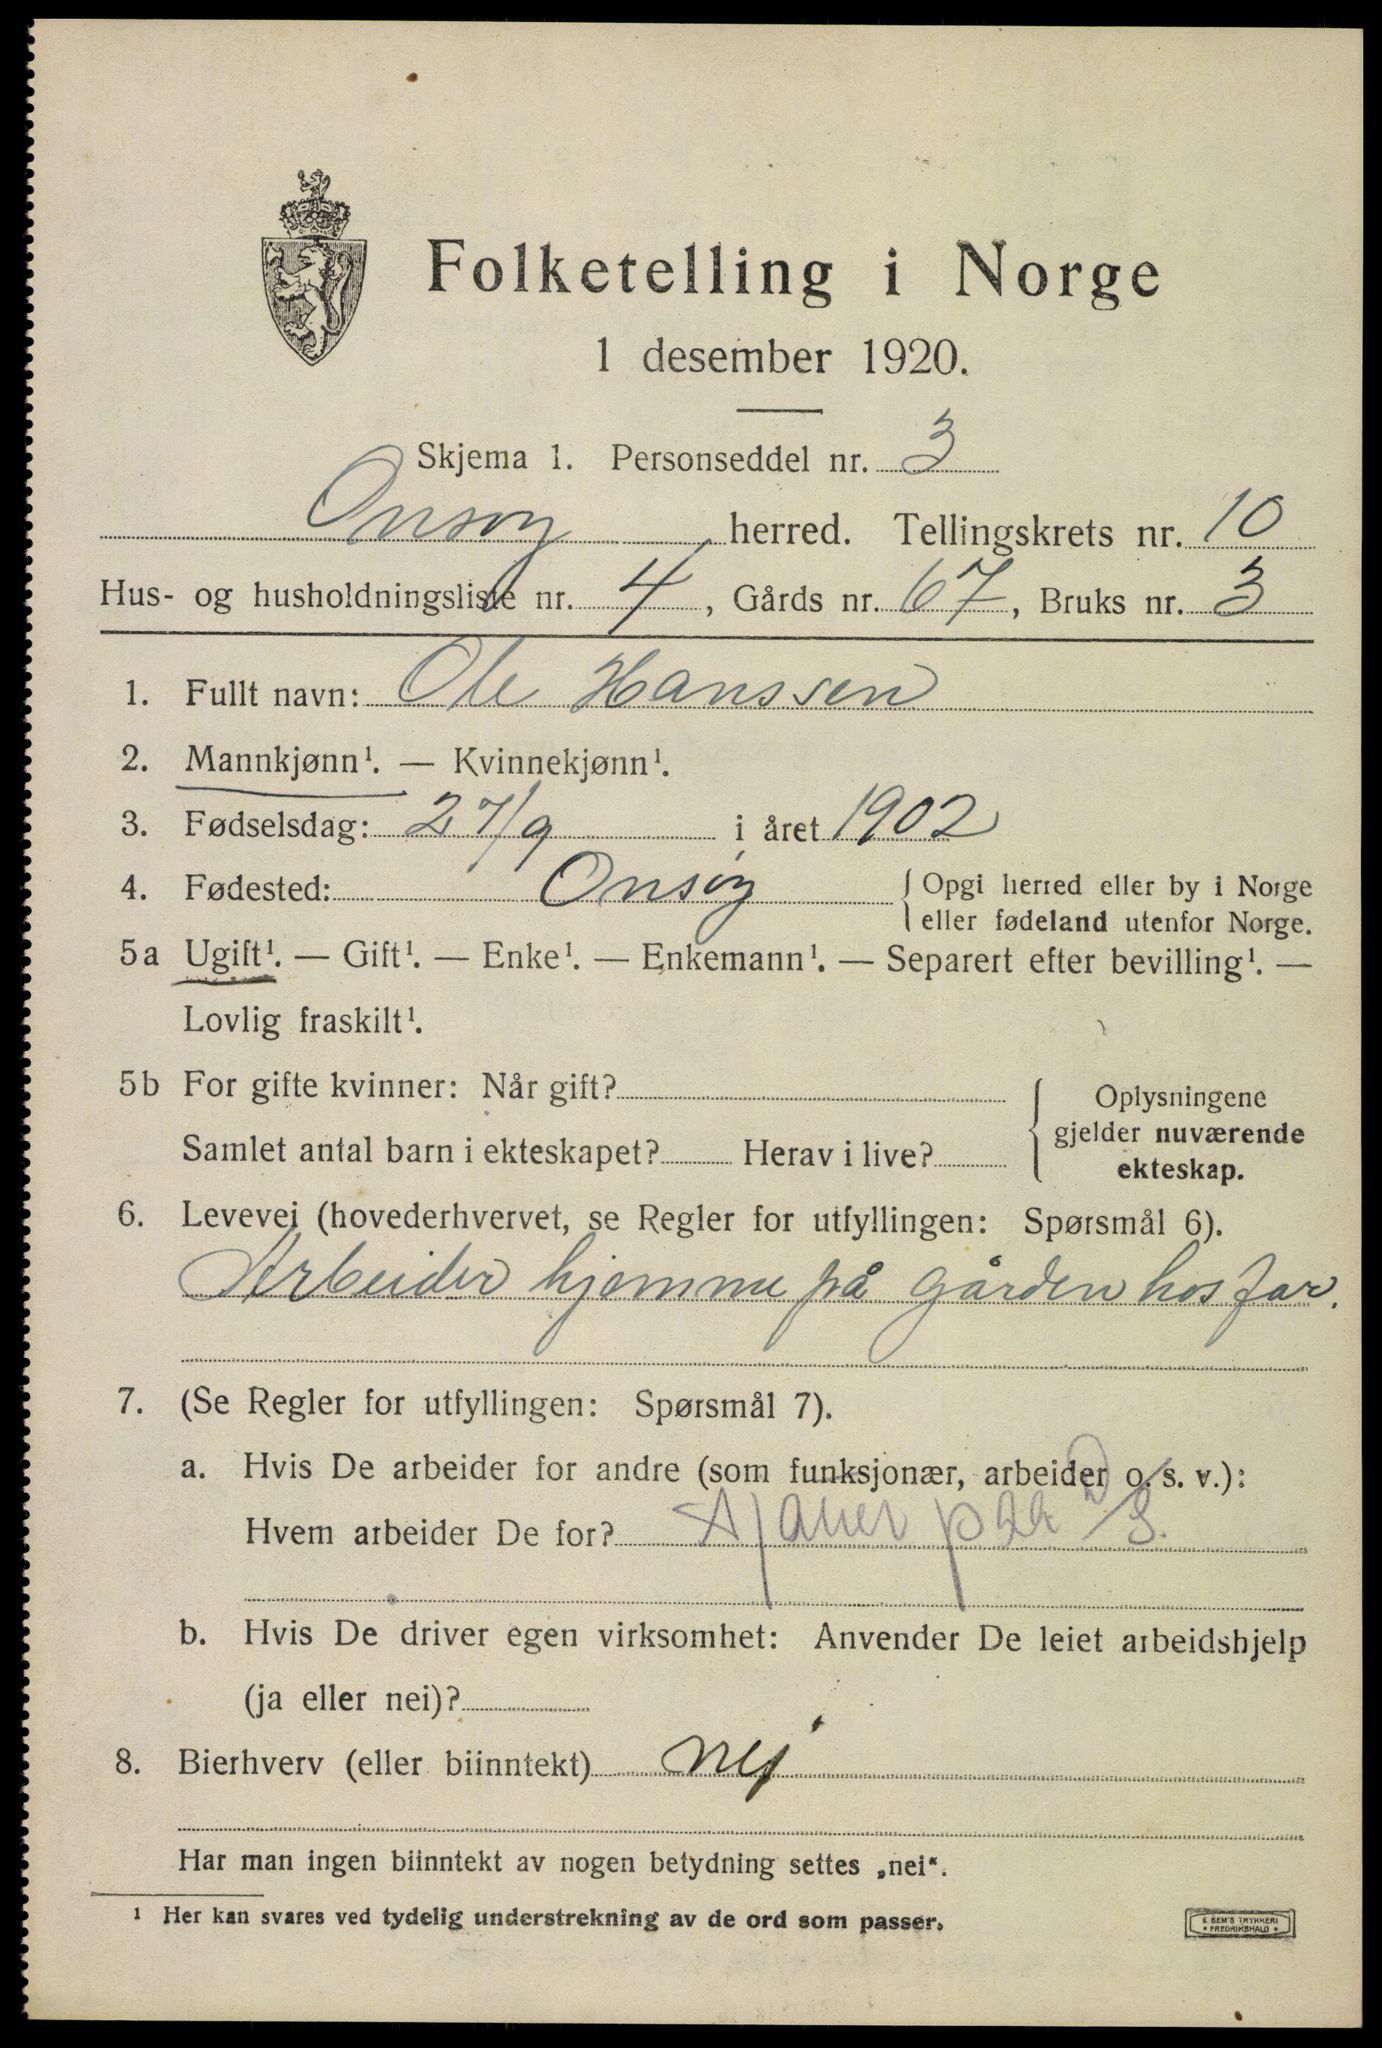 Folketelling i Norge
1 desember 1920.
Skjema 1. Personseddel nr. 3
Onsøy herred. Tellingskrets nr. 10
Hus- og husholdningsliste nr. 4, Gårds nr. 67, Bruks nr. 3
1. Fullt navn: Ole Hanssen
2. Mannkjønn¹. — Kvinnekjønn¹.
3. Fødselsdag: 27/9 i året 1902
4. Fødested: Onsøy { Opgi herred eller by i Norge
eller fødeland utenfor Norge.
5a Ugift¹. — Gift¹. — Enke¹. — Enkemann¹. — Separert efter bevilling¹. —
Lovlig fraskilt¹.
5b For gifte kvinner: Når gift?
Samlet antal barn i ekteskapet? Herav i live?
{ Oplysningene
gjelder nuværende
ekteskap.
6. Levevei (hovederhvervet, se Regler for utfyllingen: Spørsmål 6).
Arbeider hjemme på gården hos far.
7. (Se Regler for utfyllingen: Spørsmål 7).
a. Hvis De arbeider for andre (som funksjonær, arbeider o. s. v.):
Hvem arbeider De for?
b. Hvis De driver egen virksomhet: Anvender De leiet arbeidshjelp
(ja eller nei)?
8. Bierhverv (eller biinntekt) nej
Har man ingen biinntekt av nogen betydning settes „nei“.
¹ Her kan svares ved tydelig understrekning av de ord som passer.
E. SEM'S TRYKKERI
FREDRIKSHALD